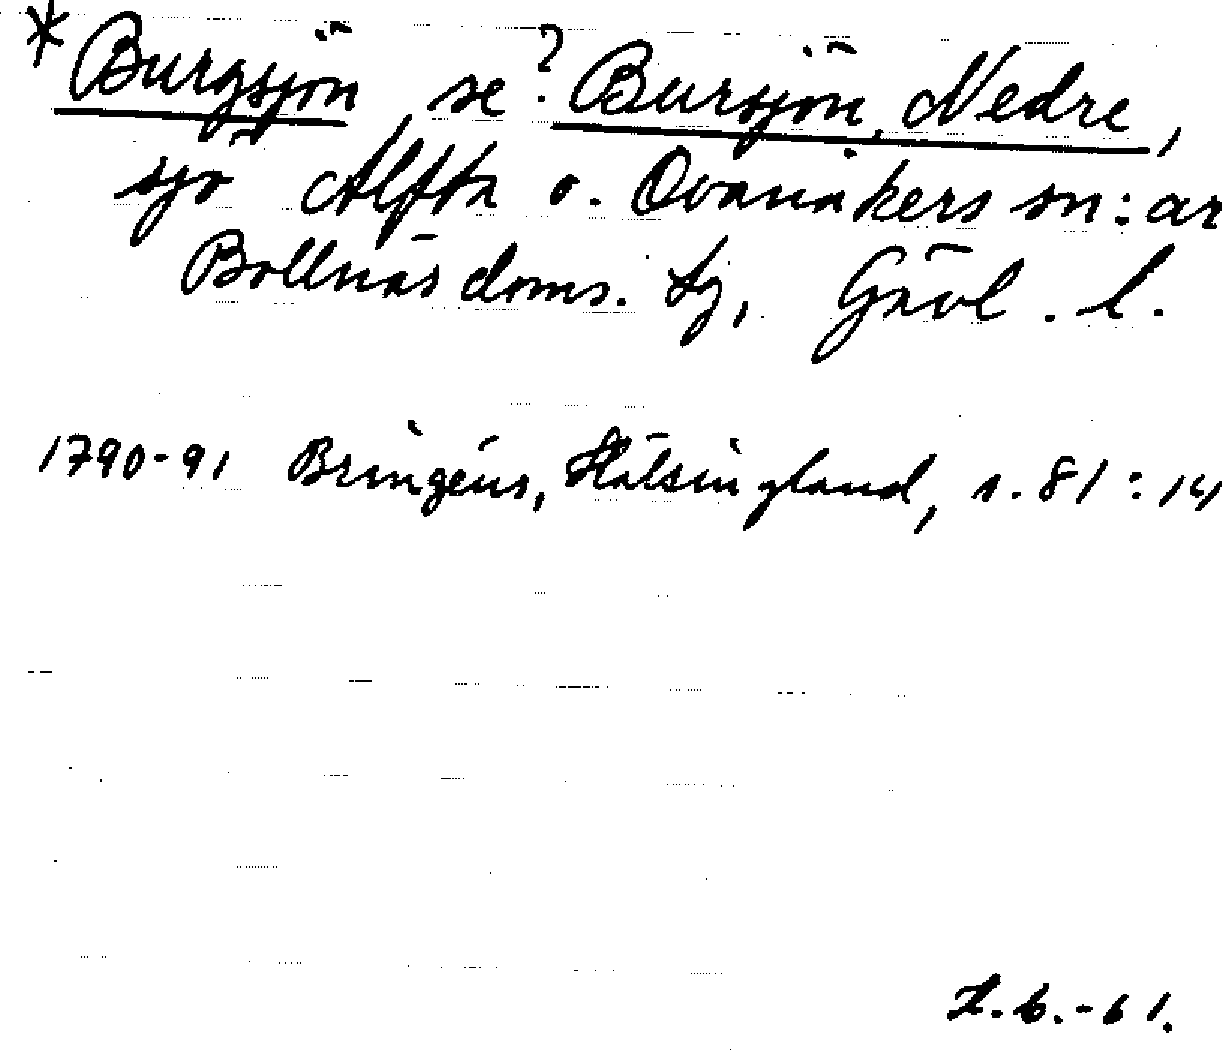 *Burgsjön, se ?Bursjön, Nedre,
sjö Alfta o. Ovanåkers sn:ar
Bollnäs doms. tg, Gävl. l.
1790-91 Bringéus, Hälsingland, s. 81:14
H.b.-61.